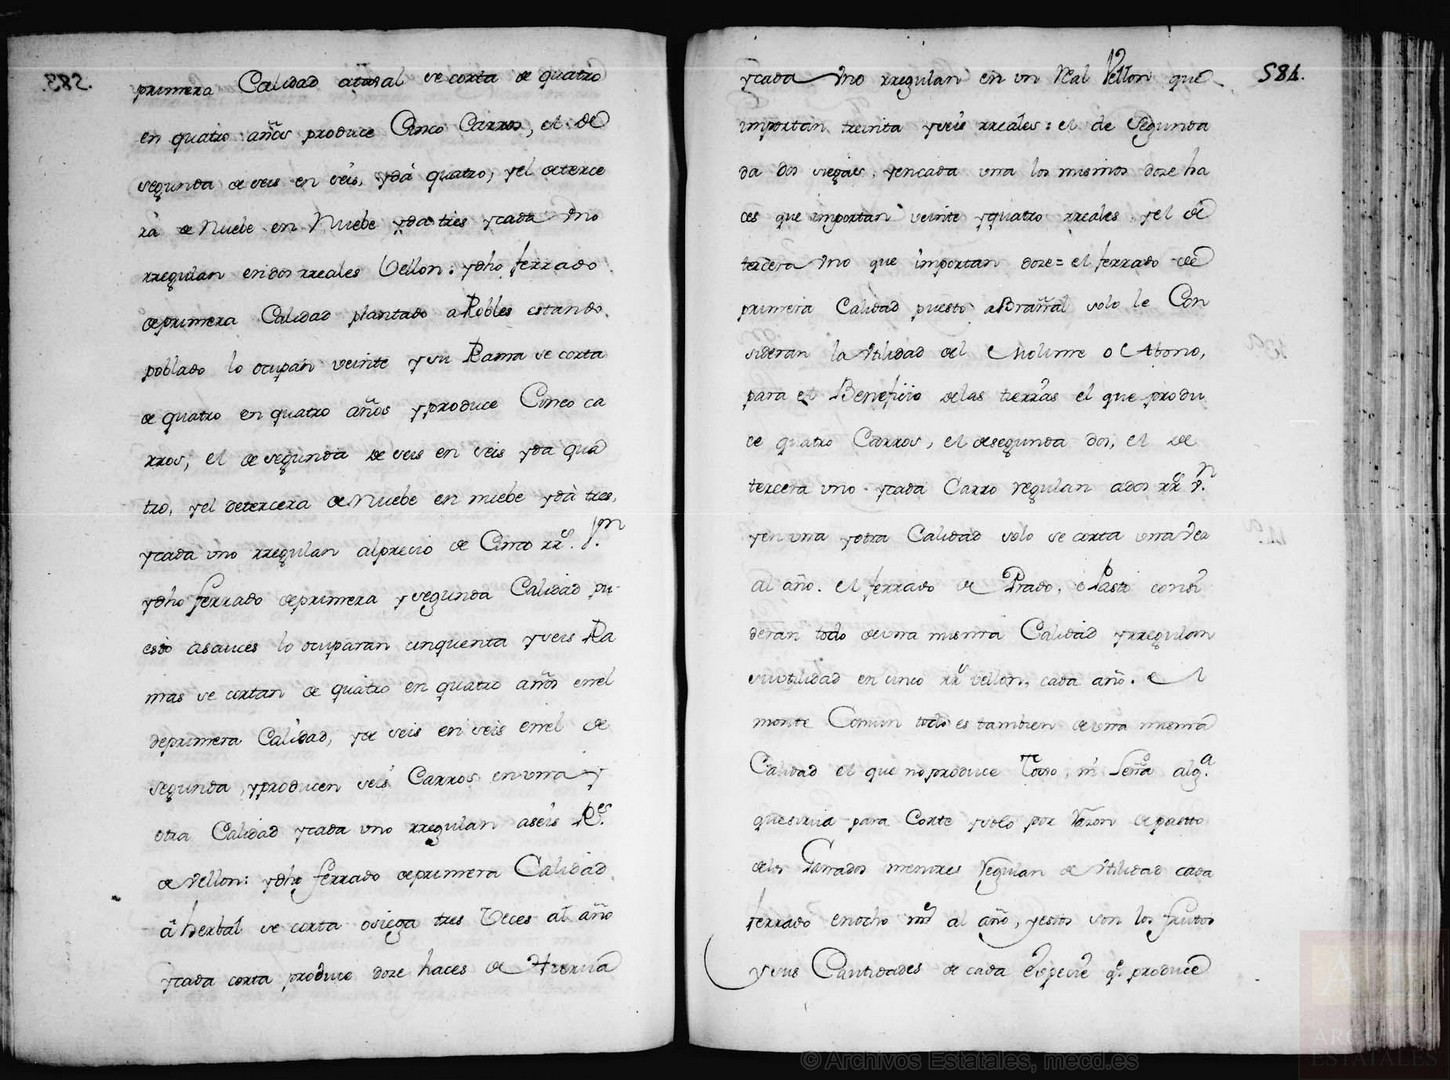 583.
primera Calidad atoxal se corta de quatro
en quatro años produce Cinco Carros, el de
segunda de seis en seis, ydá quatro, yel deterce
ra de Nuebe en Nuebe ydá tres ycada Uno
rregulan endos rreales Vellon: ydho ferrado
deprimera Calidad plantado aRobles estando
poblado lo ocupan veinte ysu Rama se corta
de quatro en quatro años yproduce Cinco ca
rros, el de segunda de seis en seis yda qua
tro, yel detercera de Nuebe en nuebe ydá tres,
ycada uno rregulan alprecio de Cinco rrs. Vn.
ydho ferrado deprimera ysegunda Calidad pu-
esto asauces lo ocuparan cinquenta yseis Ra
mas se cortan de quatro en quatro años enel
deprimera Calidad, yde seis en seis enel de
segunda, yproducen seis Carros en una y
otra Calidad ycada uno rregulan aseis Rs.
de Vellon: ydho ferrado deprimera Calidad
á herbal se corta osiega tres Veces al año
ycada corta produce doze haces de Hierva
584.
ycada Uno rregulan en un Real Vellon que
importan treinta yseis rreales: el de Segunda
da dos siegas, yencada una los mismos doze ha
ces que importan veinte yquatro rreales, yel de
tercera Uno que importan doze = el ferrado de
primera Calidad puesto aBrañal solo le Con
sideran la Utilidad del Molime o Abono,
para el Beneficio delas tierras el que produ
ce quatro Carros, el desegunda dos, el de
tercera uno ycada Carro regulan ados rrs. Vn.
yen una yotra Calidad solo se corta una vez
al año. el ferrado de Prado, ó Pasto consi
deran todo deuna misma Calidad yrregulan
suutilidad en cinco rrs vellon, cada año. el
monte Comun todo es tambien deuna misma
Calidad el que no produce Tojo, ni Leña alga.
quesirva para Corte ysolo por Razon depasto
delos Ganados menores Regulan de Utilidad cada
ferrado enocho mrs al año, yestos son los frutos
ysus Cantidades de cada Especie qe. produce
© Archivos Estatales, mecd.es
ARCHIVOS
ESTATALES